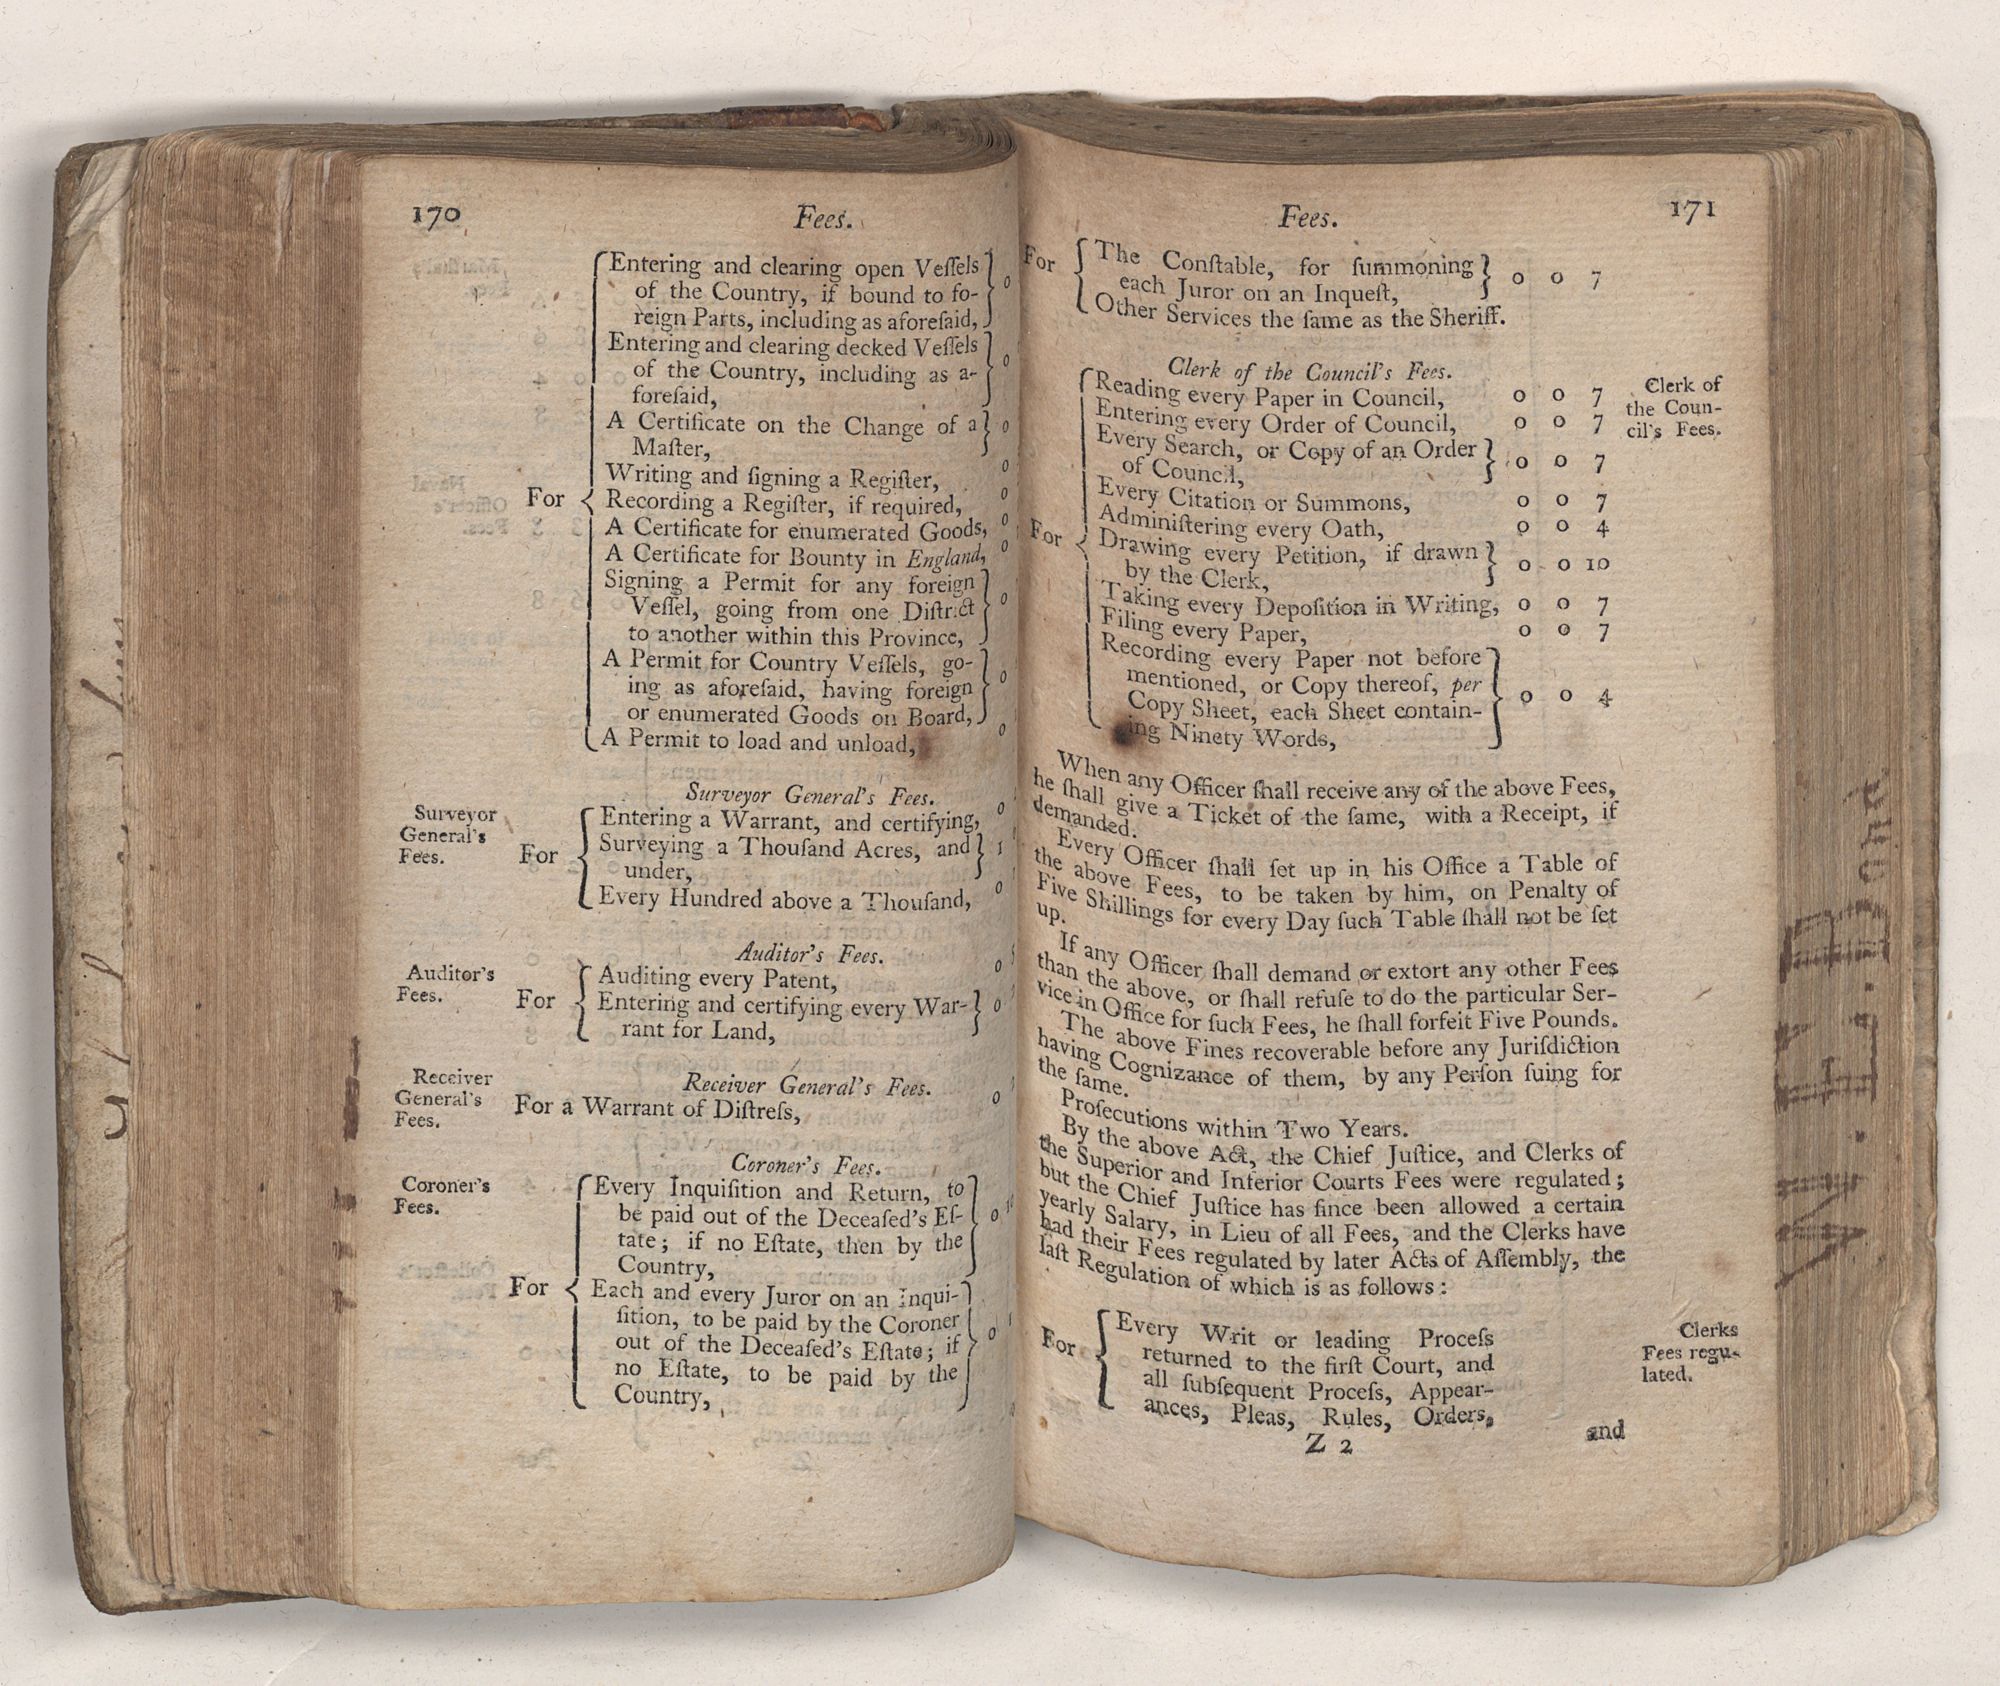 170
Fees.
Entering and clearing open Veſſels
of the Country, if bound to fo-
reign Parts, including as aforeſaid,
0
Entering and clearing decked Veſſels
of the Country, including as a-
foreſaid,
0
A Certificate on the Change of a
Maſter,
0
Writing and ſigning a Regiſter, 0
For
Recording a Regiſter, if required, 0
A Certificate for enumerated Goods, 0
A Certificate for Bounty in England, 0
Signing a Permit for any foreign
Veſſel, going from one Diſtrict
to another within this Province,
0
A Permit for Country Veſſels, go-
ing as aforeſaid, having foreign
or enumerated Goods on Board,
0
A Permit to load and unload, 0
Surveyor General's Fees.
Surveyor
General's
Fees.
For
Entering a Warrant, and certifying, 0
Surveying a Thouſand Acres, and
under,
1
Every Hundred above a Thouſand, 0
Auditor's Fees.
Auditor's
Fees.
For
Auditing every Patent, 0
Entering and certifying every War-
rant for Land,
0
Receiver General's Fees.
Receiver
General's
Fees.
For a Warrant of Diſtreſs, 0
Coroner's Fees.
Coroner's
Fees.
For
Every Inquiſition and Return, to
be paid out of the Deceaſed's Eſ-
tate; if no Eſtate, then by the
Country,
0
Each and every Juror on an Inqui-
ſition, to be paid by the Coroner
out of the Deceaſed's Eſtate; if
no Eſtate, to be paid by the
Country,
0
Fees.
171
For
The Conſtable, for ſummoning
each Juror on an Inqueſt,
0 0 7
Other Services the ſame as the Sheriff.
Clerk of the Council's Fees.
Clerk of
the Coun-
cil's Fees.
Reading every Paper in Council, 0 0 7
Entering every Order of Council, 0 0 7
Every Search, or Copy of an Order
of Council,
0 0 7
Every Citation or Summons, 0 0 7
Adminiſtering every Oath, 0 0 4
For
Drawing every Petition, if drawn
by the Clerk,
0 0 10
Taking every Depoſition in Writing, 0 0 7
Filing every Paper, 0 0 7
Recording every Paper not before
mentioned, or Copy thereof, per
Copy Sheet, each Sheet contain-
ing Ninety Words,
0 0 4
When any Officer ſhall receive any of the above Fees,
he ſhall give a Ticket of the ſame, with a Receipt, if
demanded.
Every Officer ſhall ſet up in his Office a Table of
the above Fees, to be taken by him, on Penalty of
Five Shillings for every Day ſuch Table ſhall not be ſet
up.
If any Officer ſhall demand or extort any other Fees
than the above, or ſhall refuſe to do the particular Ser-
vice in Office for ſuch Fees, he ſhall forfeit Five Pounds.
The above Fines recoverable before any Juriſdiction
having Cognizance of them, by any Perſon ſuing for
the ſame.
Proſecutions within Two Years.
By the above Act, the Chief Juſtice, and Clerks of
the Superior and Inferior Courts Fees were regulated;
but the Chief Juſtice has ſince been allowed a certain
yearly Salary, in Lieu of all Fees, and the Clerks have
had their Fees regulated by later Acts of Aſſembly, the
laſt Regulation of which is as follows:
Clerks
Fees regu-
lated.
For
Every Writ or leading Proceſs
returned to the firſt Court, and
all ſubſequent Proceſs, Appear-
ances, Pleas, Rules, Orders,
Z 2
and